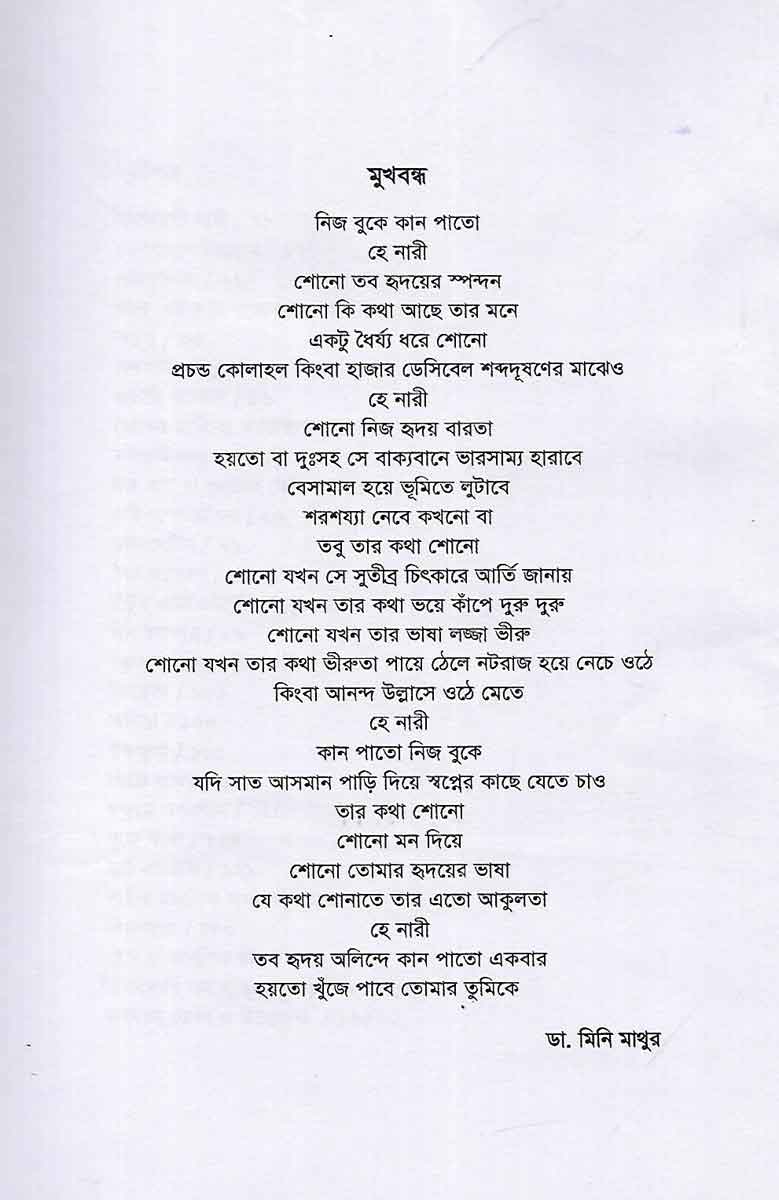 মুখবন্ধ
নিজ বুকে কান পাতো
হে নারী
শোনো তব হৃদয়ের স্পন্দন
শোনো কি কথা আছে তার মনে
একটু ধৈর্য্য ধরে শোনো
প্রচন্ড কোলাহল কিংবা হাজার ডেসিবেল শব্দদূষণের মাঝেও
হে নারী
শোনো নিজ হৃদয় বারতা
হয়তো বা দুঃসহ সে বাক্যবানে ভারসাম্য হারাবে
বেসামাল হয়ে ভূমিতে লুটাবে
শরশয্যা নেবে কখনো বা
তবু তার কথা শোনো
শোনো যখন সে সুতীব্র চিৎকারে আর্তি জানায়
শোনো যখন তার কথা ভয়ে কাঁপে দুরু দুরু
শোনো যখন তার ভাষা লজ্জা ভীরু
শোনো যখন তার কথা ভীরুতা পায়ে ঠেলে নটরাজ হয়ে নেচে ওঠে
কিংবা আনন্দ উল্লাসে ওঠে মেতে
হে নারী
কান পাতো নিজ বুকে
যদি সাত আসমান পাড়ি দিয়ে স্বপ্নের কাছে যেতে চাও
তার কথা শোনো
শোনো মন দিয়ে
শোনো তোমার হৃদয়ের ভাষা
যে কথা শোনাতে তার এতো আকুলতা
হে নারী
তব হৃদয় অলিন্দে কান পাতো একবার
হয়তো খুঁজে পাবে তোমার তুমিকে
ডা. মিনি মাথুর